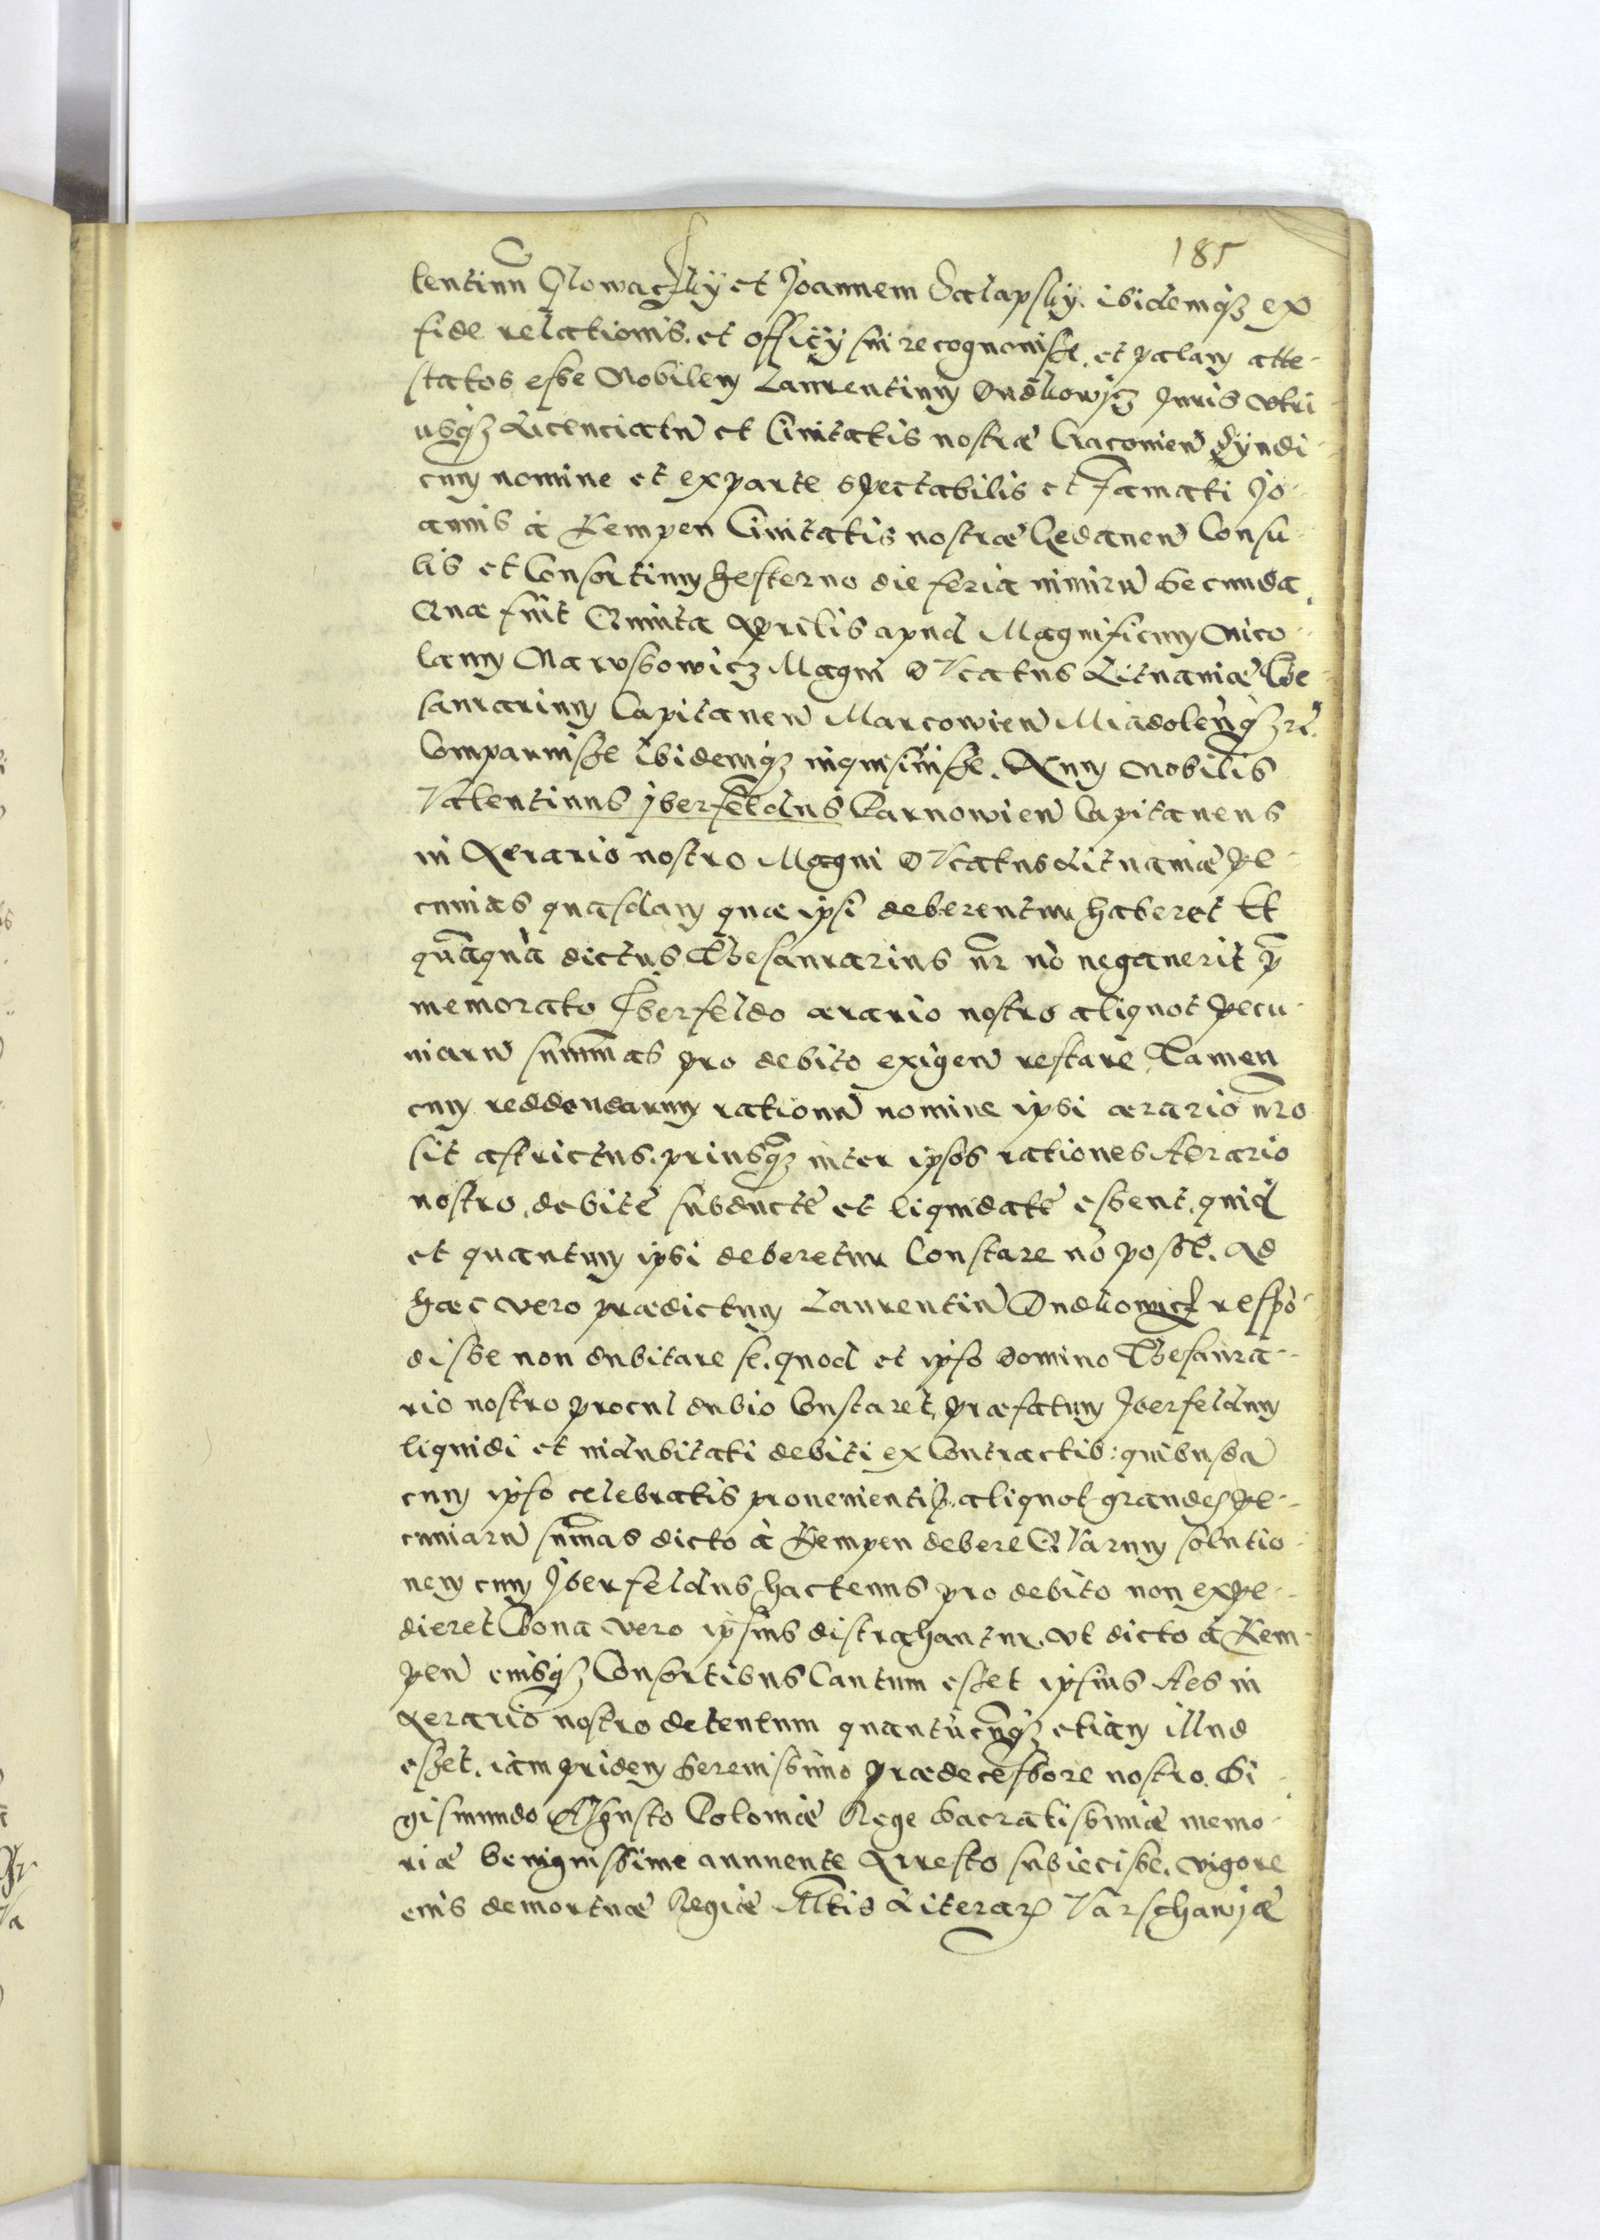 185
lentinũ Glowaczky et Joannem Salapsky. ibidemqз ex
fide relationis. et officÿ sui recognouisse. et palam atte-
status esse Nobilem Laurentium Dudkowicz Juris vtri-
usqз Licenciatũ et Ciuitatis nostræ Cracouien̄ Syndi-
cum nomine et ex parte spectabilis et Famati Jo-
annis à Kempen Ciuitatis nostræ Gedanen̄ Consu-
lis et Consortium hesterno die feria nimirũ secunda.
Quæ fuit Quinta Aprilis apud Magnificum Nico-
laum Narussowicz Magni Ducatus Lituaniæ The-
saurarium Capitaneũ Marcowien̄ Miadolen̄qз rc̄.
Comparuisse ibidemqз inquisiuisse. Num Nobilis
Valentinus jberfeldus Tarnowien̄ Capitaneus
in Aerario nostro Magni Ducatus Lituaniæ pe-
cunias quasdam quæ ipsi deberentur, haberet Et
quāquā dictus Thesaurarius nr̄ nō negauerit p̄
memorato Jberfeldo ærario nostro aliquot pecu-
niarũ sum̄as pro debito exigen̄ restare Tamen
cum reddendarum rationũ nomine ipsi ærario nr̄o
sit astrictus. priusqз inter ipsos rationes Aerario
nostro, debitè subductè et liquidatè essent, quid
et quantum ipsi deberetur Constare nō posse. Ad
hæc vero prædictum Laurentiũ Dudkowicz respō-
disse non dubitare se. quod et ipso Domino Thesaura-
rio nostro procul dubio Constaret, præfatum Jberfeldum
liquidi et indubitati debiti ex Contractib: quibusdā
cum ipso celebratis prouenienti[s], aliquot grandes pe-
cuniarũ sum̄as dicto à Kempen debere Quarum solutio-
nem cum Jberfeldus hactenus pro debito non expe-
dieret Bona vero ipsius distrahantur, vt dicto à Kem-
pen eiusqз Consortibus Cautum esset ipsius Aes in
Aerario nostro detentum quantũcunqз etiam illud
esset, iam pridem Serenissimo Prædecessore nostro. Si-
gismundo Augusto Poloniæ Rege Sacratissimæ memo-
riæ benignissime annuente Arresto subiecisse. vigore
eius demortuæ Regiæ Mtis Literarꝝ Varschawjæ